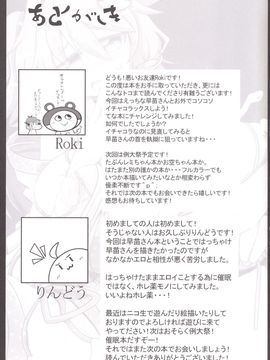 あとがき
どうも!悪いお友達Rokiです!
この度は本をお手に取っていただき、更には
こんなトコまで読んでくださり有難うございます!
今回はえっちな早苗さんとお外でコソコソ
イチャコラックスしよう!
てな本にチャレンジしてみました!
如何でしたでしょうか?
イチャコラなのに見直してみると
早苗さんの首を執拗に狙っていますね…
Roki
次回は例大祭予定です!
たぶんレミちゃん本かお空ちゃん本か、
はたまた別の誰かの本か…フルカラーでも
いつか本描いてみたいなとか相変わらず
優柔不断です^p^;
それでは次の本でもお会いできたら嬉しいです!
感想もお待ちしています!
初めましての人は初めまして!
そうじゃない人はお久しぶりりんどうです!
今回は早苗さん本ということではっちゃけ
早苗さんを描きたかったのですが
なかなかエロと相性が悪く苦労しました。
りんどう
はっちゃけたままエロイことする為に催眠
ではなく、ホレ薬モノにしてみました!
いいよねホレ薬・・・!
最近はニコ生で遊んだり絵描いたりして
おりますのでよろしければ遊びに来て
やってください!次はおそらく例大祭!
催眠本だすぞー!
それではまた次の本でお会いしましょう!
読んでいただきありがとうございました!